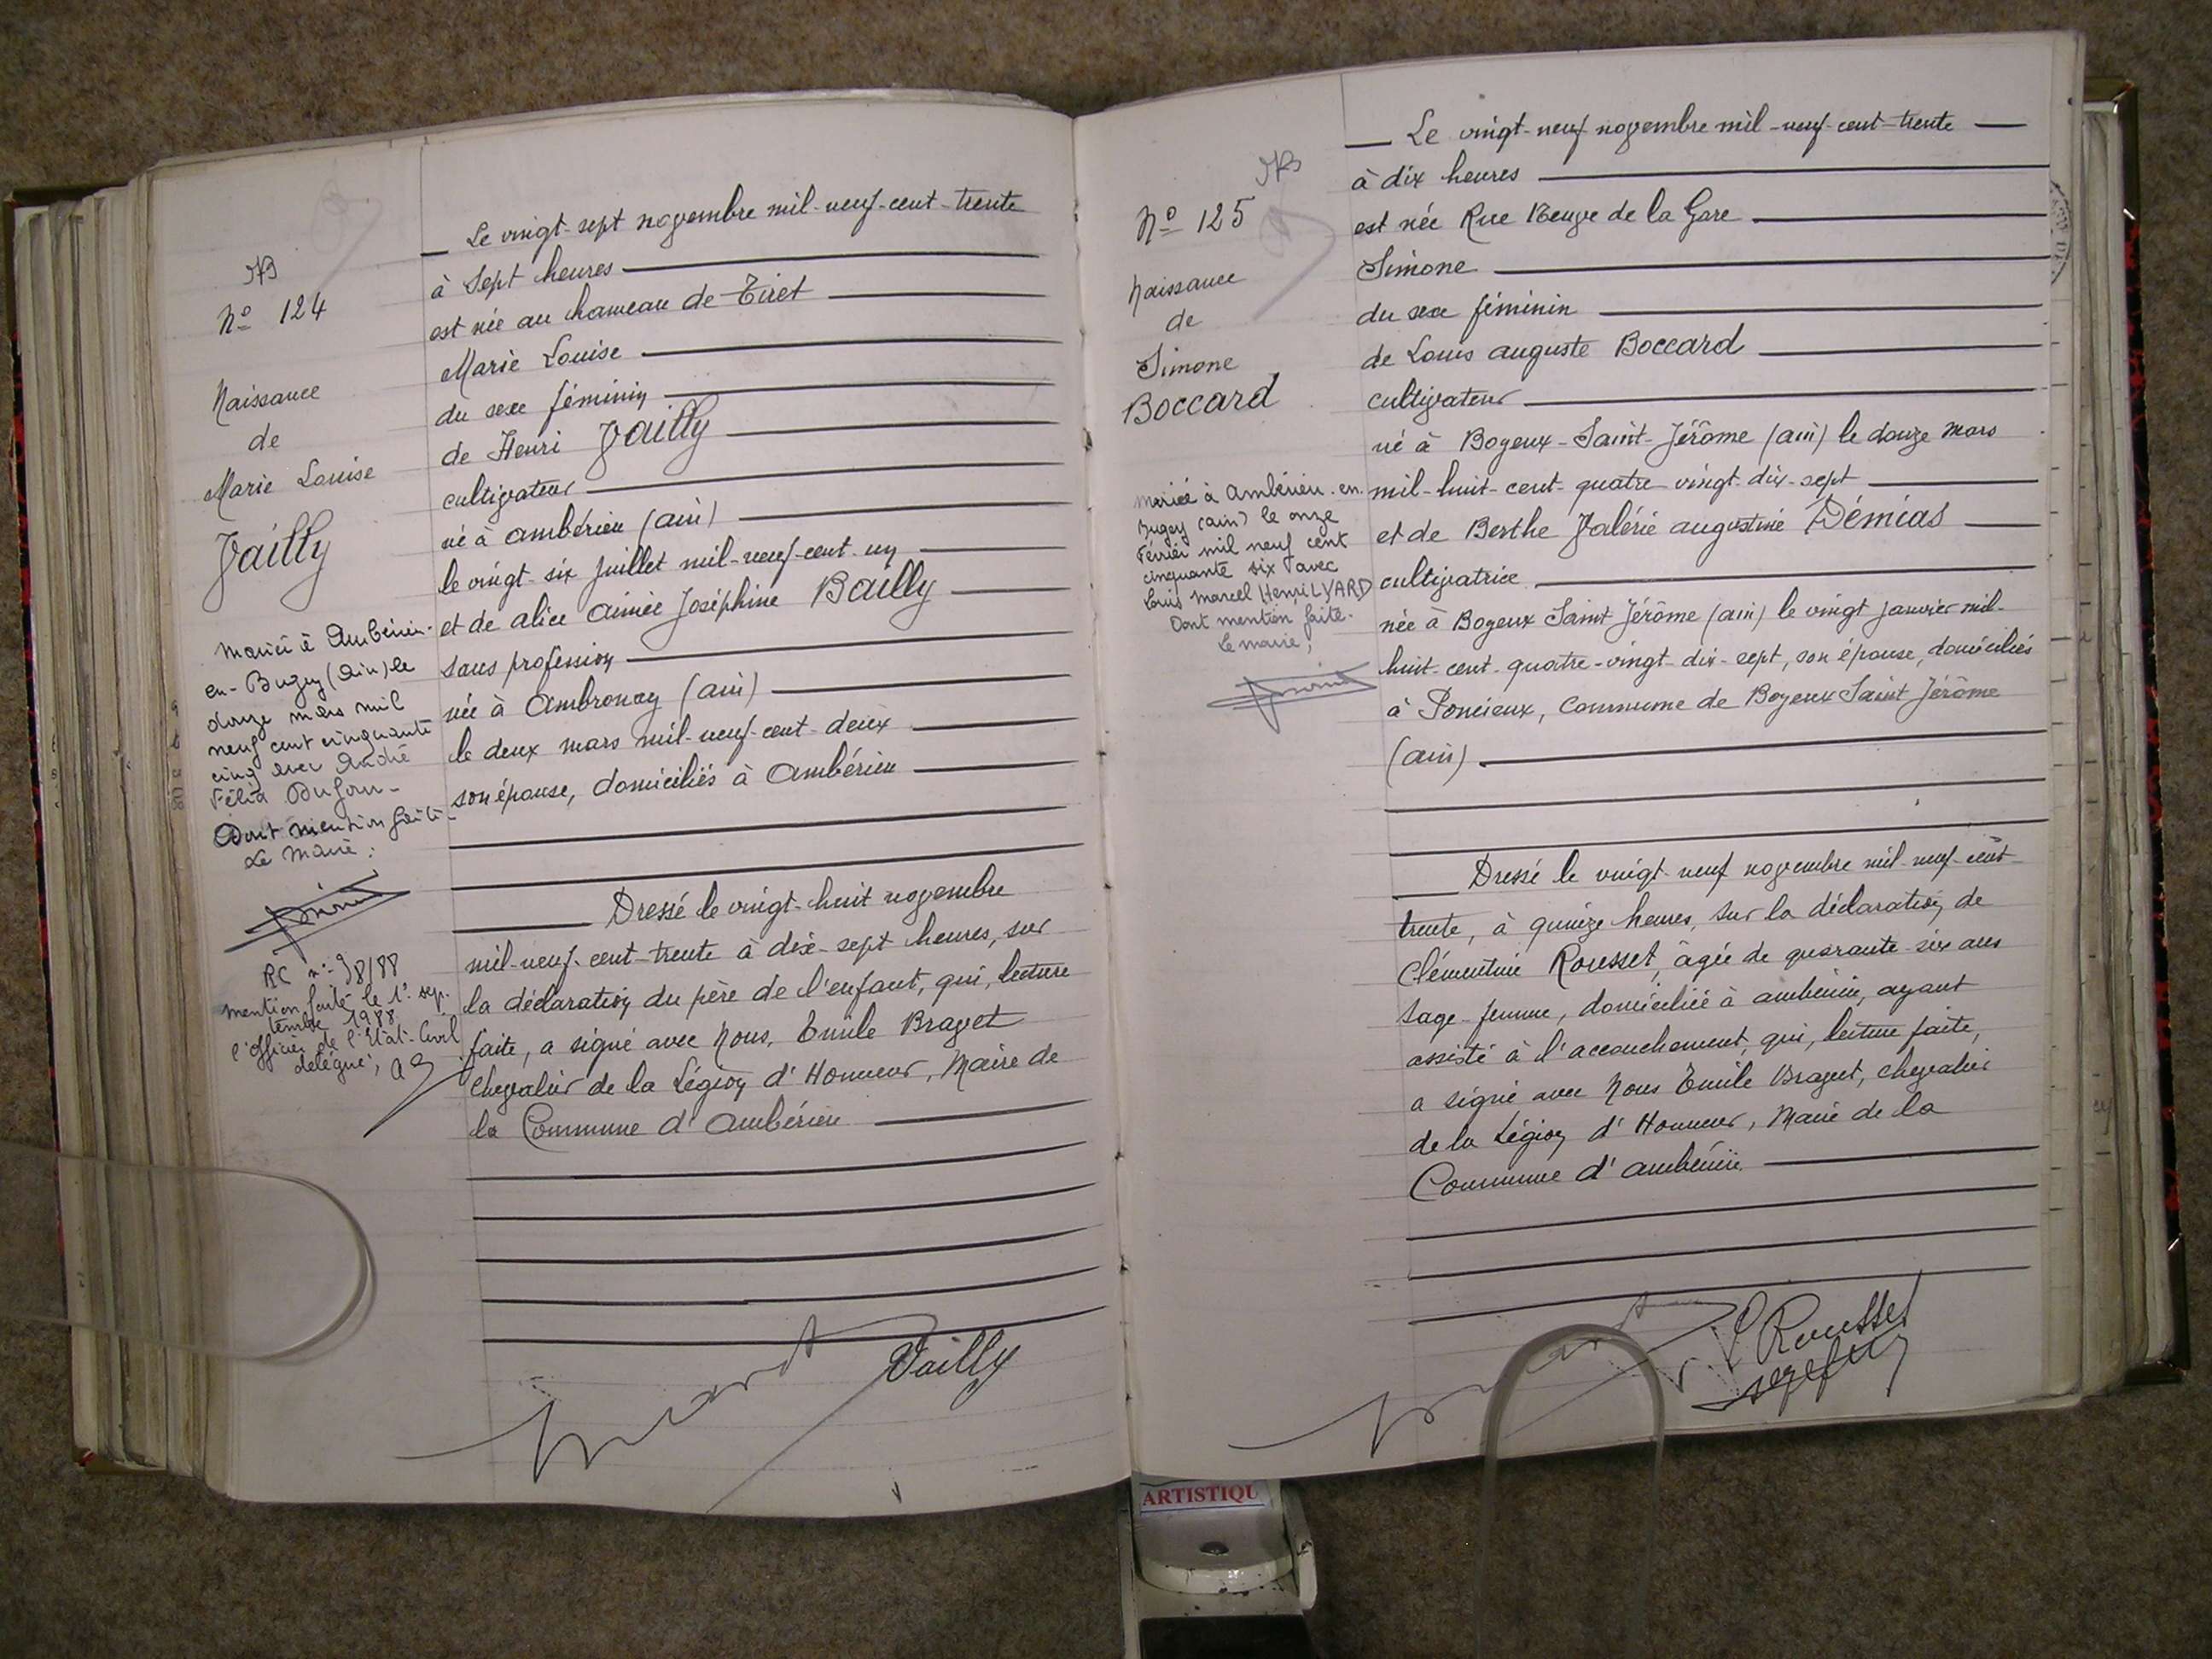 N° 124
Naissance
de
Marie Louise
Vailly
Mariée à Ambérieu-
en-Bugey (Ain) le
douze mars mil
neuf cent cinquante
cinq avec André
Félix Dufour-
Dont mention faite-
Le Maire:
RC n°- 98/88
mention faite le 1° sep-
tembre 1988
l'officier de l'Etat-Civil
délégué;
Le vingt-sept novembre mil-neuf-cent-trente
à Sept heures
est née au hameau de Tiret
Marie Louise
du sexe féminin
de Henri Vailly
cultivateur
né à Ambérieu (ain)
le vingt-six Juillet mil-neuf-cent-un
et de alice aimée Joséphine Bailly
sans profession
née à Ambronay (ain)
le deux mars mil-neuf-cent-deux
son épouse, domiciliés à Ambérieu
Dressé le vingt-huit novembre
mil-neuf-cent-trente à dix-sept heures, sur
la déclaration du père de l'enfant, qui, lecture
faite, a signé avec Nous, Emile Bravet
Chevalier de la Légion d'Honneur, Maire de
la Commune d'Ambérieu
Vailly
N° 125
Naissance
de
Simone
Boccard
Mariée à Ambérieu-en-
Bugey (ain) le onze
Février mil neuf cent
cinquante six avec
Louis Marcel Henri LYARD
Dont mention faite-
Le maire,
Le vingt-neuf novembre mil-neuf-cent-trente
à dix heures
est née Rue Neuve de la Gare
Simone
du sexe féminin
de Louis auguste Boccard
cultivateur
né à Boyeux-Saint-Jérôme (ain) le douze mars
mil-huit-cent-quatre-vingt-dix-sept
et de Berthe Valérie augustine Démias
cultivatrice
née à Boyeux Saint Jérôme (ain) le vingt janvier mil-
huit-cent-quatre-vingt-dix-sept, son épouse, domiciliés
à Poncieux, Commune de Boyeux Saint Jérôme
(ain)
Dressé le vingt-neuf novembre mil-neuf-cent-
trente, à quinze heures, sur la déclaration de
Clémentine Rousset, âgée de quarante-six ans
sage-femme, domiciliée à ambérieu, ayant
assisté à l'accouchement, qui, lecture faite,
a signé avec Nous Emile Bravet, chevalier
de la Légion d'Honneur, Maire de la
Commune d'ambérieu
Rousset
ARTISTIQU